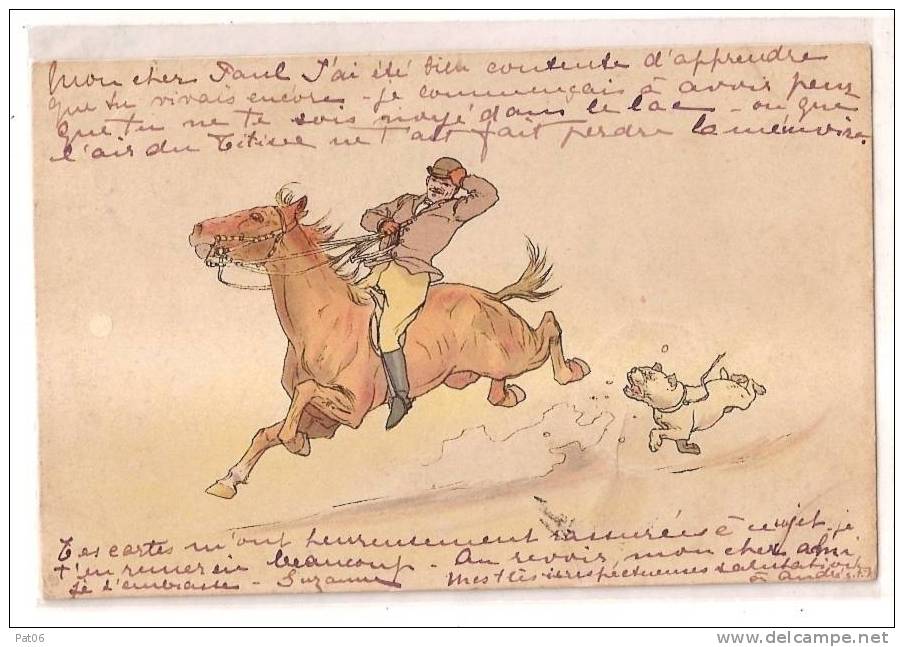 Mon cher Paul J'ai été bien contente d'apprendre
que tu vivais encore - je commençais à avoir peur
que tu ne te sois noyé dans le lac - ou que
l'air du Titisee ne t'ait fait perdre la mémoire.
Tes cartes m'ont heureusement rassurées à ce sujet - je
t'en remercie beaucoup - Au revoir, mon cher ami
Je t'embrasse - Suzanne
Mes très irrespectueuses salutations
à André
Pat06
www.delcampe.net